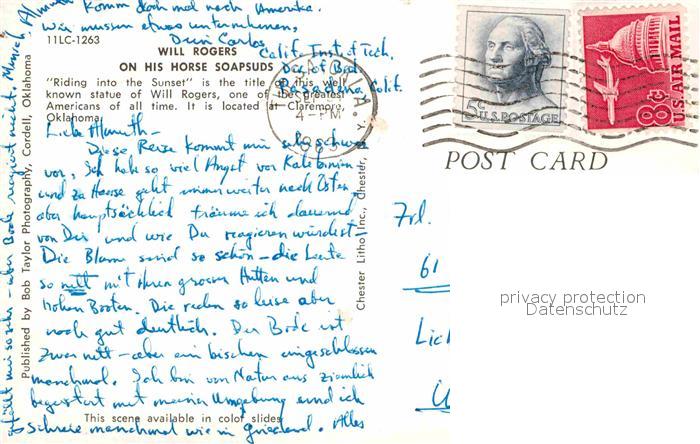 Komm doch mal nach Amerika.
Wir müssen etwas unternehmen,
Dein Carlos
Calif. Inst. of Tech.
Div. of Biol.
Pasadena, Calif.
11LC-1263
WILL ROGERS
ON HIS HORSE SOAPSUDS
"Riding into the Sunset" is the title of this well
known statue of Will Rogers, one of the greatest
Americans of all time. It is located at Claremore,
Oklahoma.
4-PM
Liebe Almuth-
Diese Reise kommt mir sehr schwer
vor, Ich habe so viel Angst vor Kalifornien
und zu Hause geht immer weiter nach Osten,
aber hauptsächlich träume ich dauernd
von Dir und wie Du reagieren würdest.
Die Blumen sind so schön - die Leute
so nett mit ihren grossen Hütten und
hohen Booten. Die reden so leise aber
noch gut deutlich. Der Bode ist
zwar nett - aber ein bischen eingeschlossen
manchmal. Ich bin von Natur aus ziemlich
begeistert mit meiner Umgebung und ich
schreie manchmal wie in griechenland. Alles
This scene available in color slides
gefällt mir so sehr - aber Bode reagiert nicht. Mensch, Almuth
Published by Bob Taylor Photography, Cordell, Oklahoma
Chester Litho Inc., Chester, N. Y.
5c
U.S. POSTAGE
8c
U.S. AIR MAIL
POST CARD
Frl.
61
privacy protection
Datenschutz